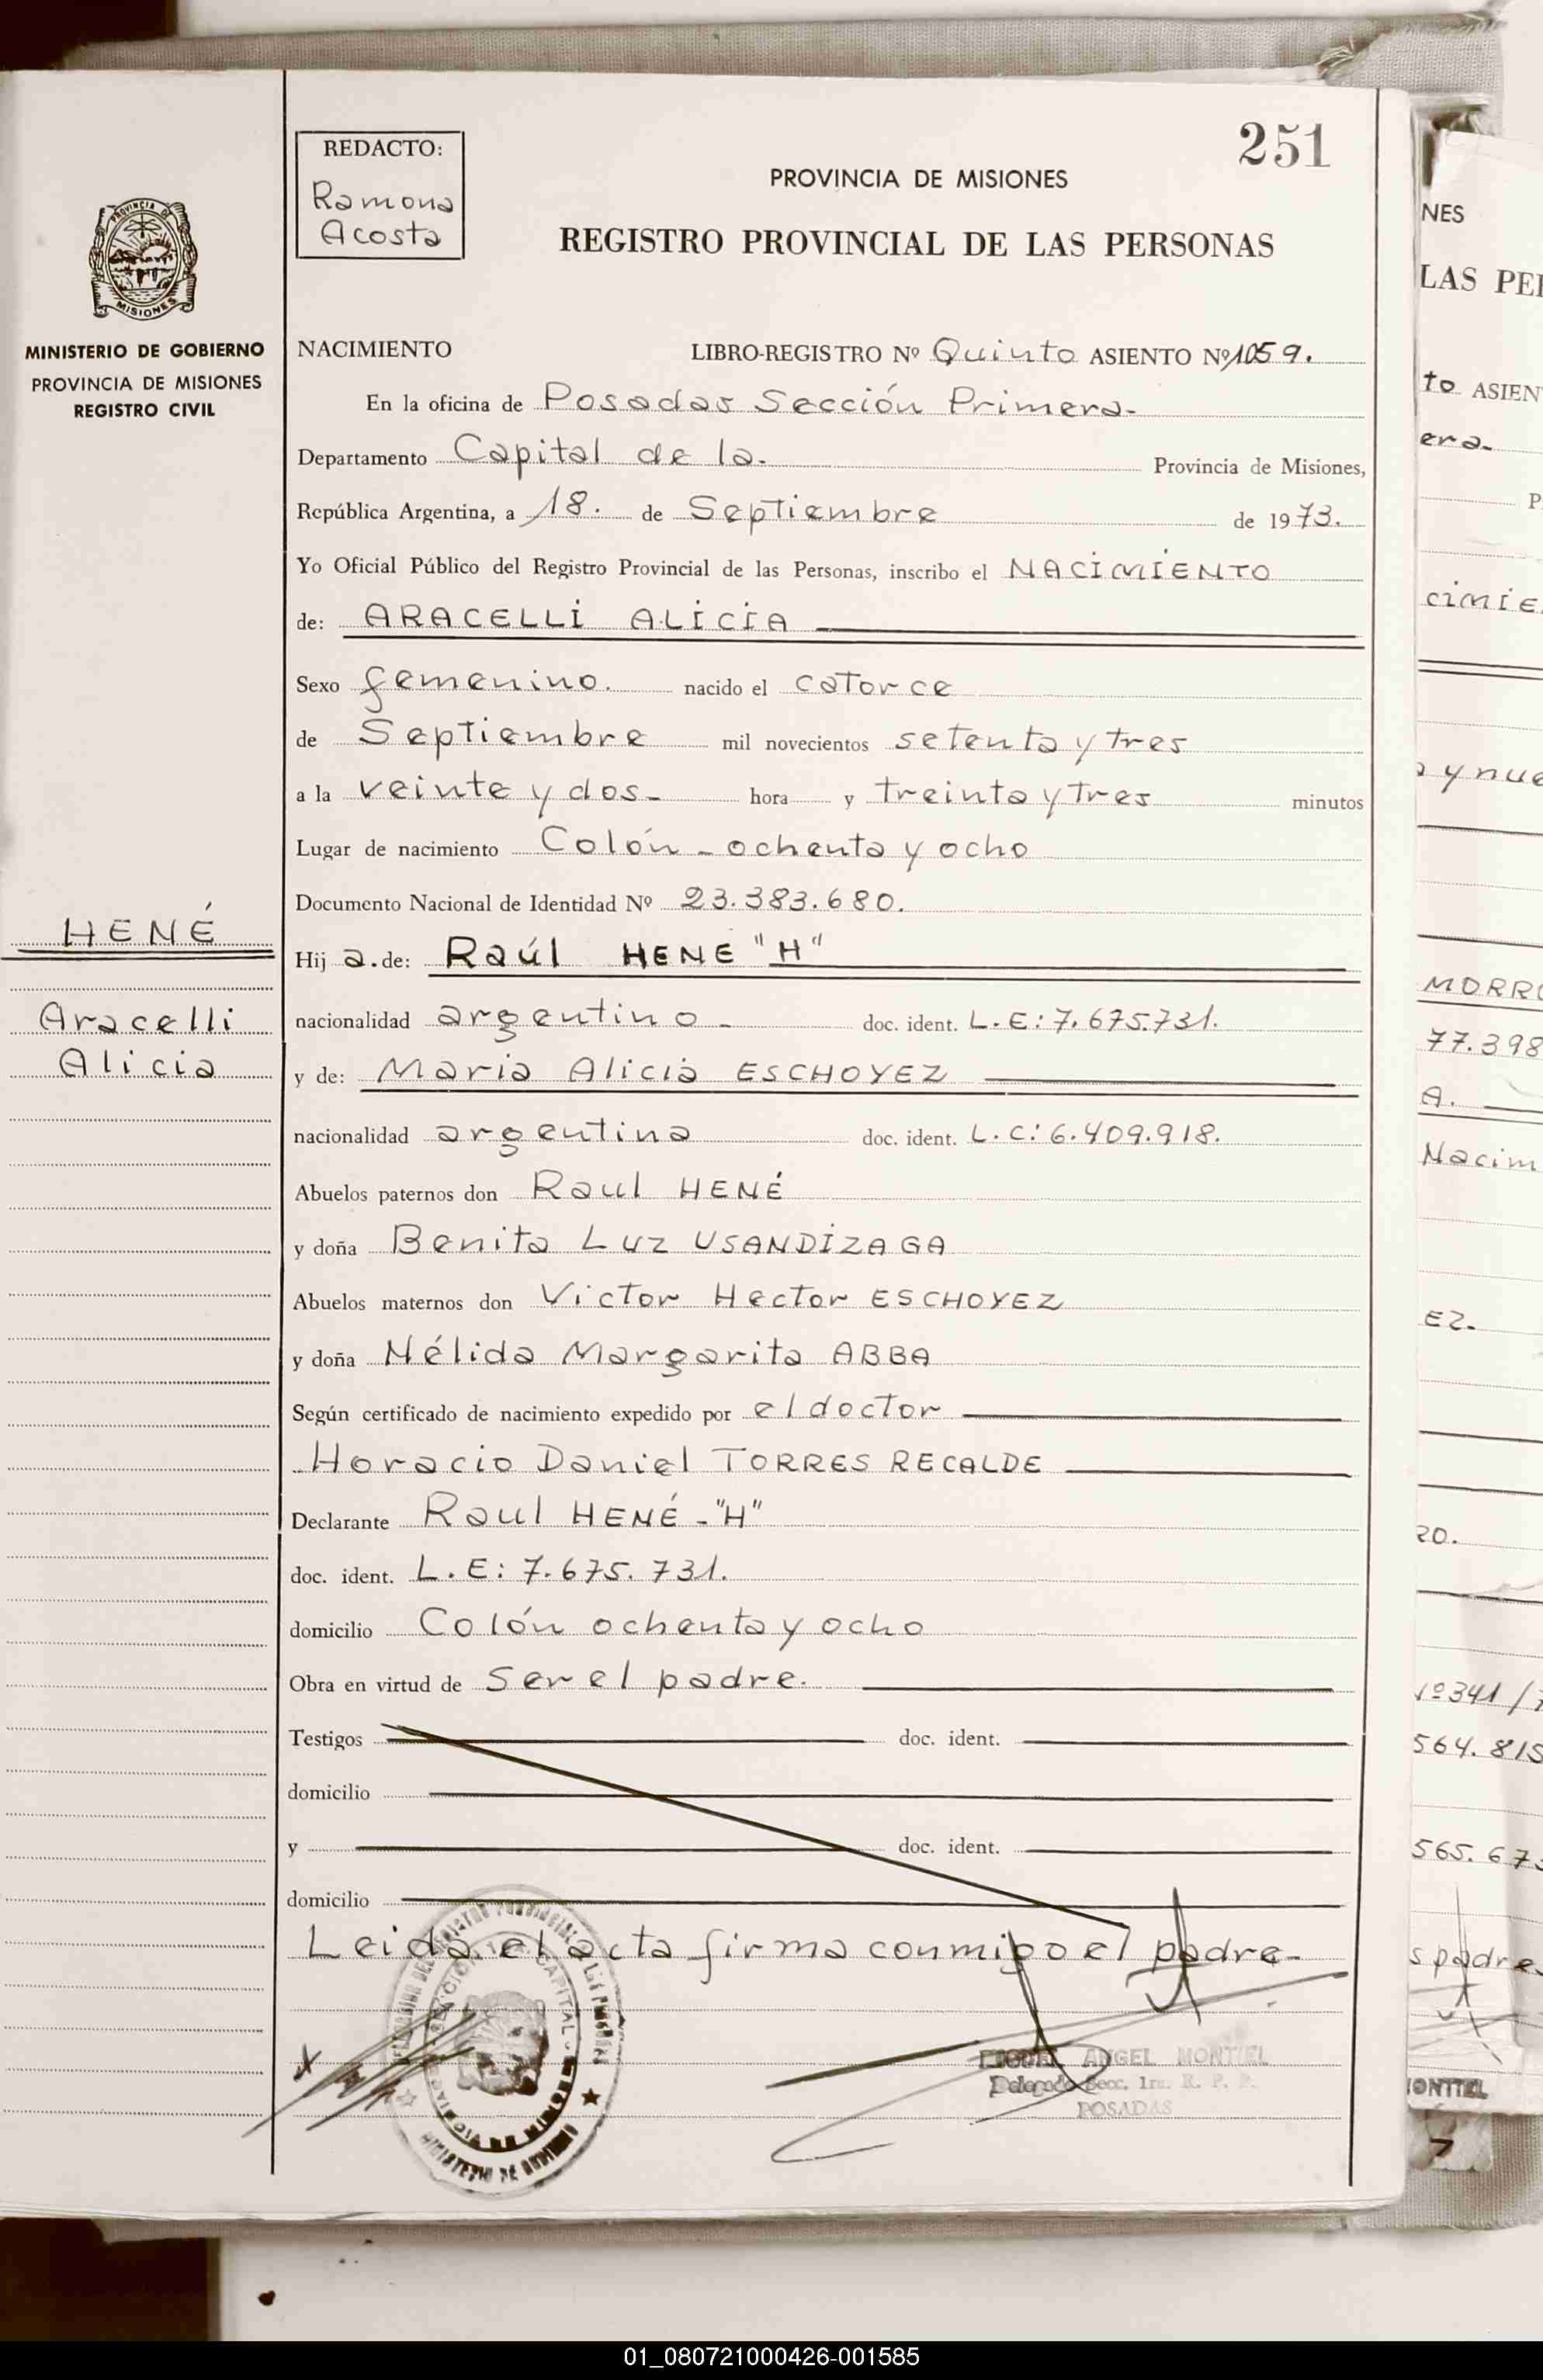 251
REDACTO:
Ramona
Acosta
PROVINCIA DE MISIONES
REGISTRO PROVINCIAL DE LAS PERSONAS
PROVINCIA DE
MISIONES
MINISTERIO DE GOBIERNO
PROVINCIA DE MISIONES
REGISTRO CIVIL
NACIMIENTO LIBRO-REGISTRO Nº Quinto ASIENTO Nº 1059.
En la oficina de Posadas Sección Primera-
Departamento Capital de la. Provincia de Misiones,
República Argentina, a 18. de Septiembre de 1973.
Yo Oficial Público del Registro Provincial de las Personas, inscribo el NACIMIENTO
de: ARACELLI ALICIA
Sexo femenino. nacido el catorce
de Septiembre mil novecientos setenta y tres
a la veinte y dos- hora y treinta y tres minutos
Lugar de nacimiento Colón - ochenta y ocho
Documento Nacional de Identidad Nº 23.383.680.
HENÉ
Hij a. de: Raúl HENE "H"
Aracelli
Alicia
nacionalidad argentino - doc. ident. L.E: 7.675.731.
y de: Maria Alicia ESCHOYEZ
nacionalidad argentina doc. ident. L.C: 6.409.918.
Abuelos paternos don Raul HENÉ
y doña Benita Luz USANDIZAGA
Abuelos maternos don Victor Hector ESCHOYEZ
y doña Nélida Margarita ABBA
Según certificado de nacimiento expedido por el doctor
Horacio Daniel TORRES RECALDE
Declarante Raul HENÉ - "H"
doc. ident. L.E: 7.675.731.
domicilio Colón ochenta y ocho
Obra en virtud de ser el padre.
Testigos doc. ident.
domicilio
y doc. ident.
domicilio
Leida el acta firma conmigo el padre-
ANGEL MONTIEL
Delegado Secc. 1ra. R. P. P.
POSADAS
NES
LAS PE
to ASIEN
era-
P
cimie
y nue
MORR
77.398
A.
Nacim
EZ-
20.
Nº 341/
564.815
565.67
s padre
MONTIEL
01_080721000426-001585